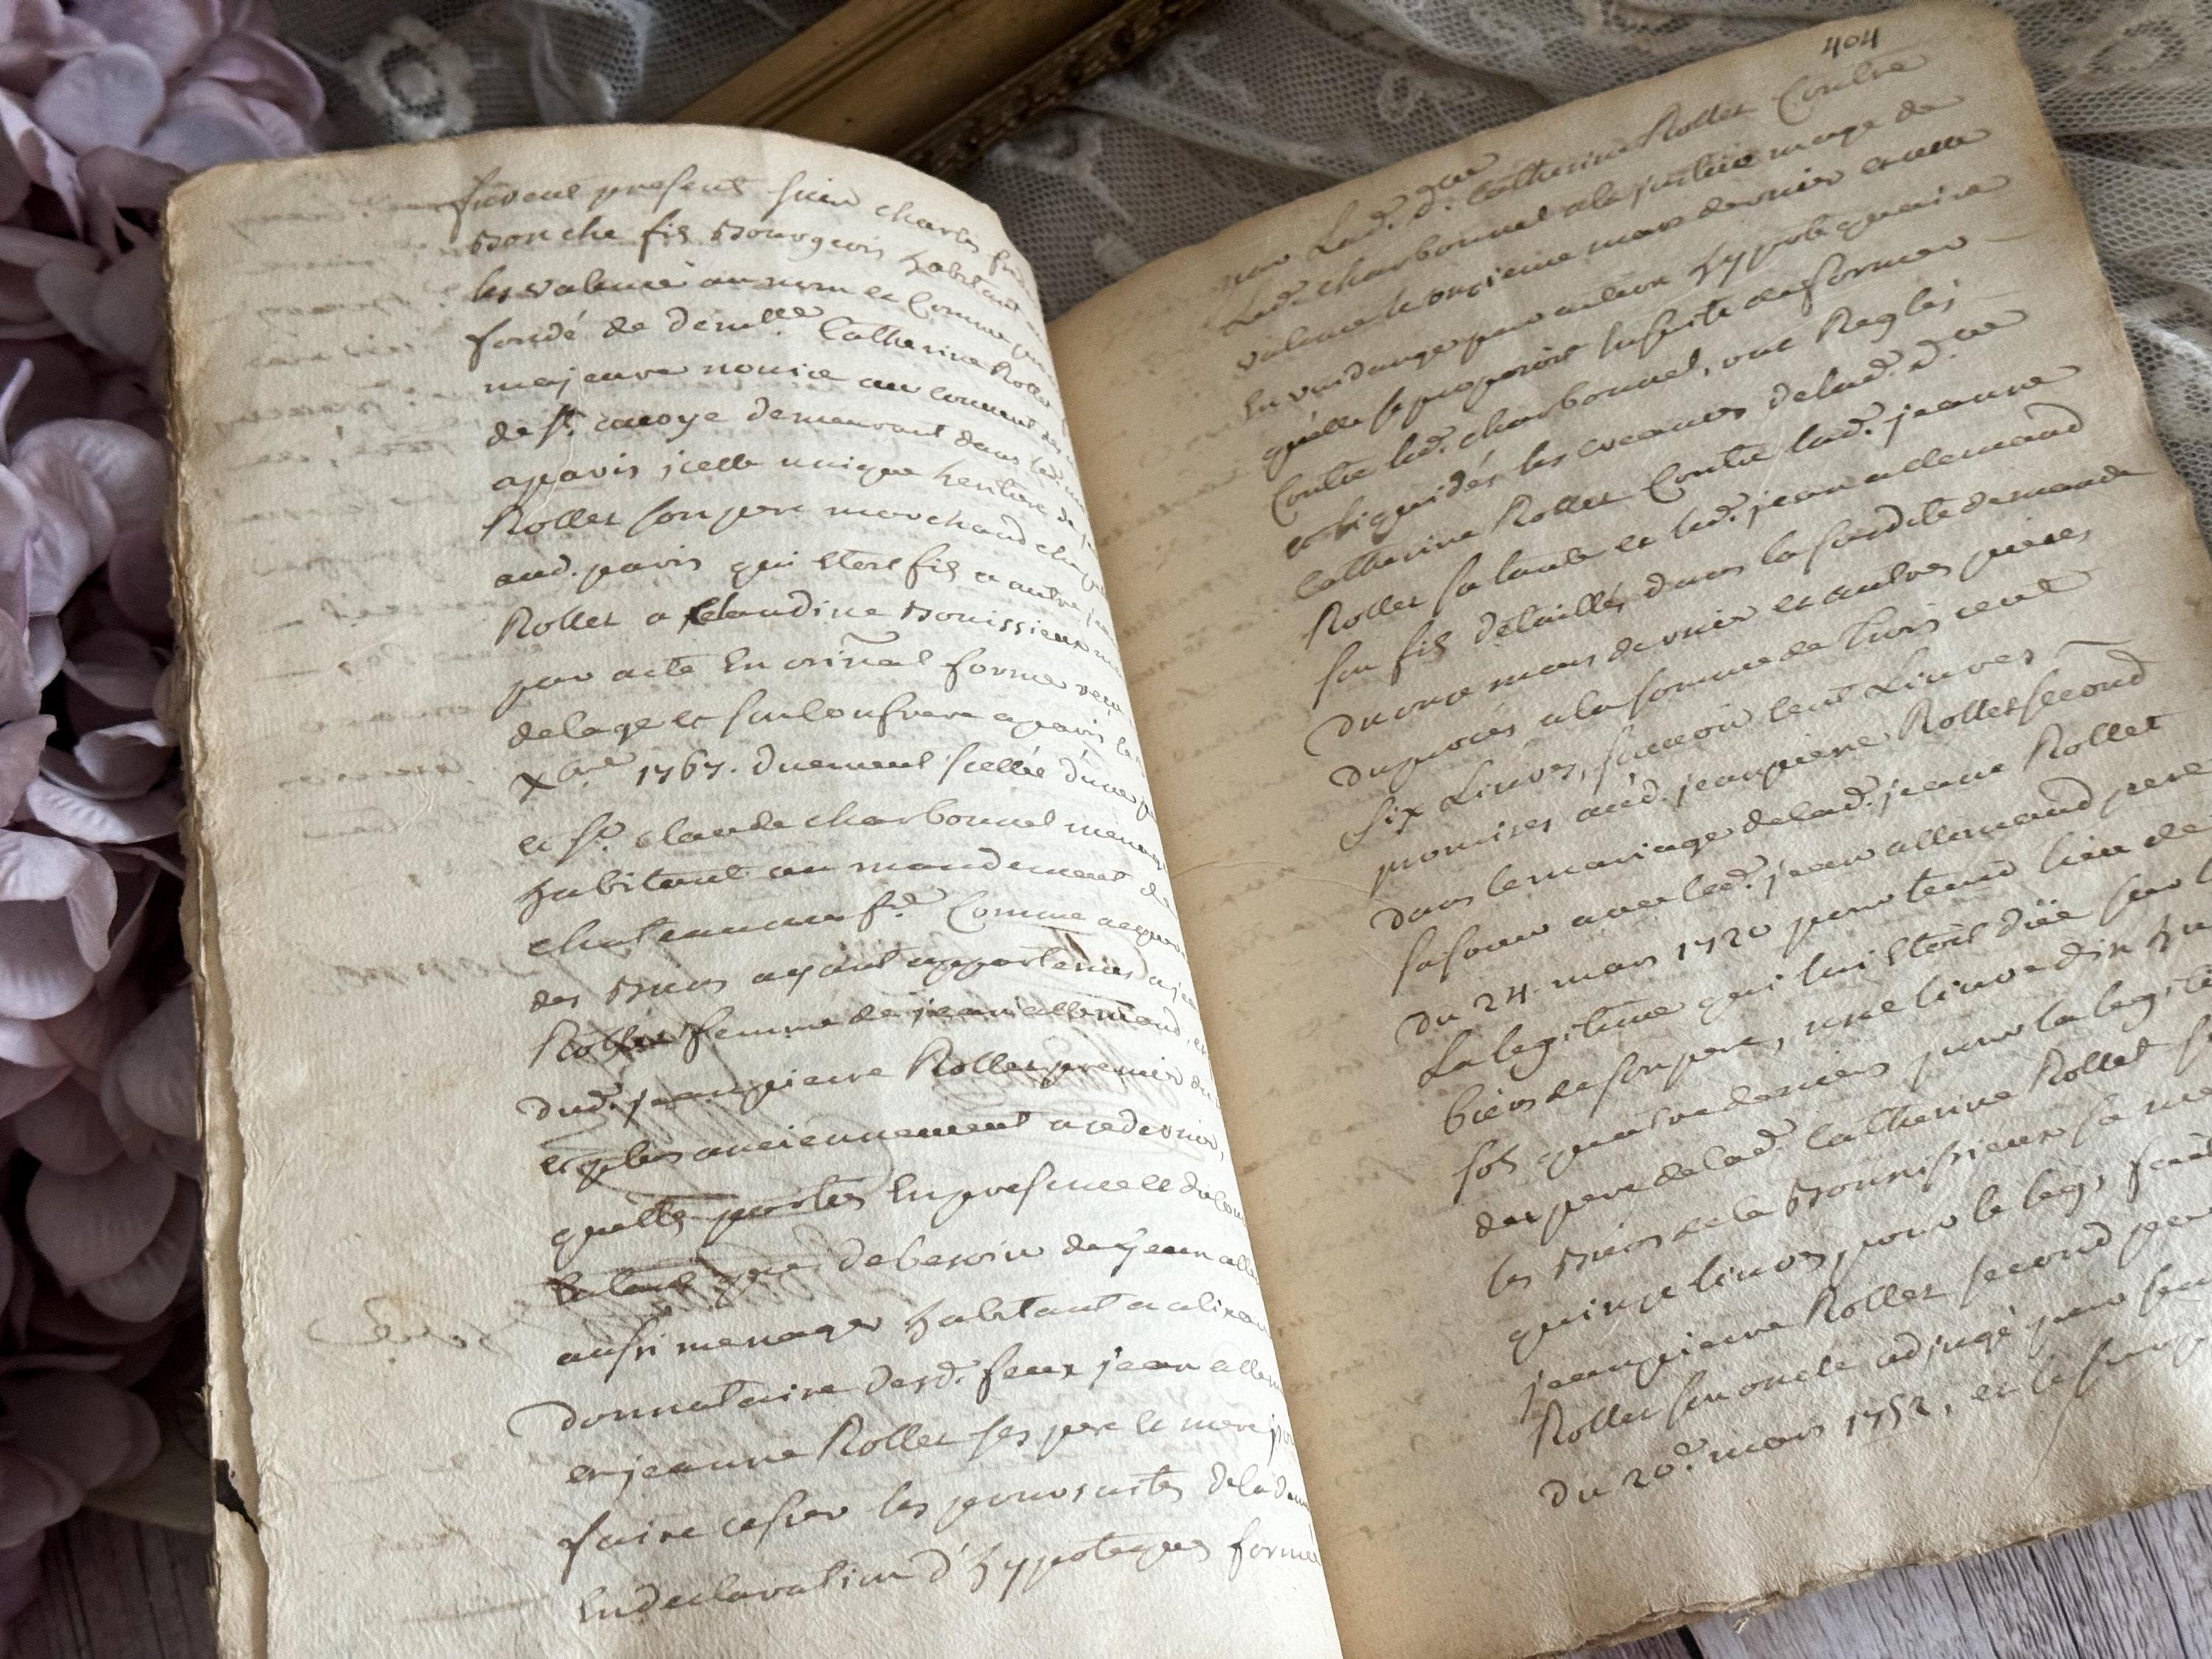 furent present sieur charles
Bouche fils Bourgeois habitant
les valence au nom et Comme
fondé de demelle Catherine Rollet
majeure novice au couvent des
de St. avoye demeurant dans led.
a paris icelle unique heritiere de
Rollet son pere marchand
aud. paris qui etoit fils a autre
Rollet a Claudine Bouissieux
par acte En original forme reçu
delage et son confrere a paris le
xbre 1767. duement scellée d'une
et Sr. claude charbonnel menager
habitant au mandement de
chateauneuf Comme acquereur
des Biens ayant appartenus a jeanne
Rollet femme de jean allemand, et
dud. jeanpierre Rollet premier du
et plus anciennement
quelles parties En presence et du
En tant que de besoin de jean
aussi menager habitant a alixan
donnataire desd. feux jean
et jeanne Rollet ses pere et mere
faire cesser les poursuites de la
En declaration d'hypoteques
404
par Lad. dlle. Catherine Rollet Contre
Led. charbonnel a la justice mage de
valence le onzieme mars dernier et celle
En vuidange par action hypothequaire
quelle se proposoit Ensuite de former
Contre led. charbonnel, ont Reglés
et liquidés les creances de lad. dlle
Catherine Rollet Contre lad. jeanne
Rollet sa tante et led. jean allemand
son fils detaillés dans la susdite demande
du onze mars dernier et autres pieces
du procés a la somme de trois cent
six Livres, scavoir cent Livres
promises aud. jeanpierre Rollet second
dans le mariage de lad. jeanne Rollet
sa soeur avec led. jean allemand pere
du 24. mars 1720 pour tenir lieu de
La legitime qui lui etoit düe sur
biens de son pere, une livre dix huit
sols quatre deniers pour la
du pere de lad. Catherine Rollet
les Biens de la Bouissieux sa
quinze livres, pour le legs
jeanpierre Rollet second
Rollet son oncle adjugé par
du 20e. mars 1752, et le